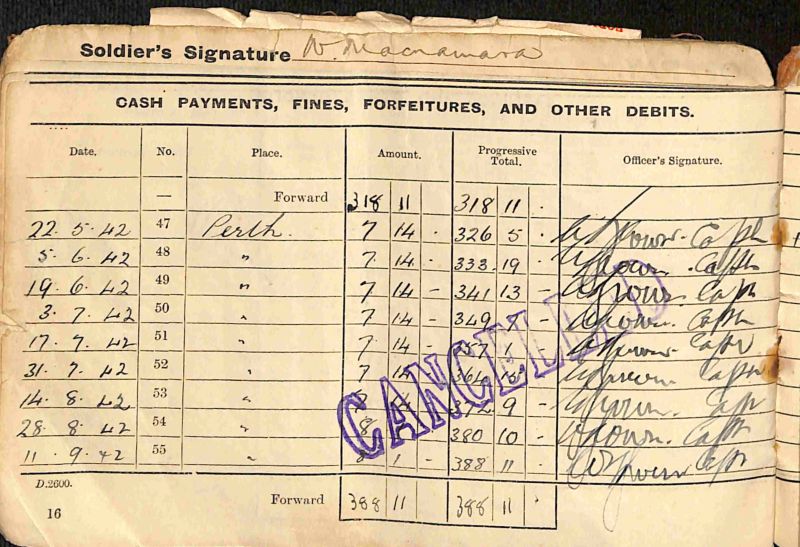 Soldier's Signature N. Macnamara
CASH PAYMENTS, FINES, FORFEITURES, AND OTHER DEBITS.
Date. No. Place. Amount. Progressive Total. Officer's Signature.
— Forward 318 11 318 11 .
22. 5. 42 47 Perth. 7 14 - 326 5 - Capt
5. 6. 42 48 " 7 14 - 333 19 - Capt
19. 6. 42 49 " 7 14 - 341 13 - Capt
3. 7. 42 50 " 7 14 - 349 7 - Capt
17. 7. 42 51 " 7 14 - 357 1 - Capt
31. 7. 42 52 " 7 14 364 15 - Capt
14. 8. 42 53 " 372 9 - Capt
28. 8. 42 54 " 8 380 10 - Capt
11. 9. 42 55 " 8 1 - 388 11 - Capt
CANCELLED
D.2600.
Forward 388 11 388 11 .
16